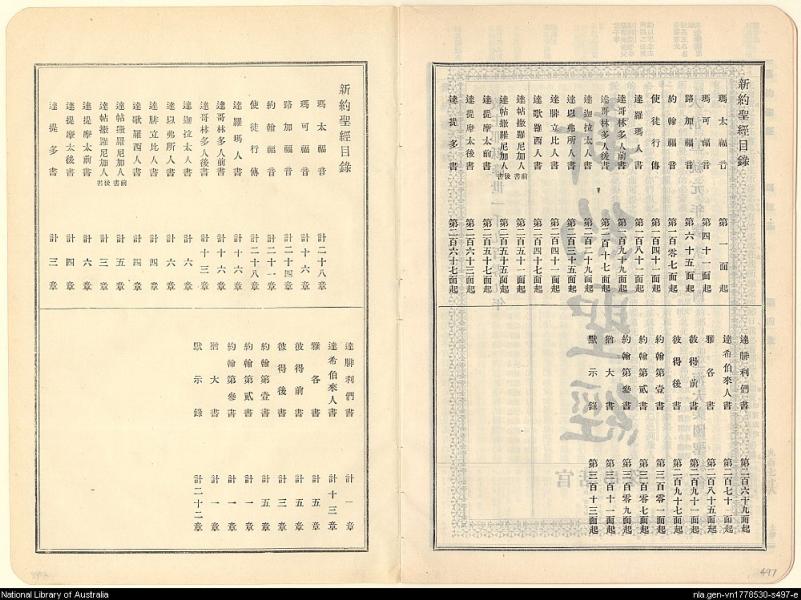 新約聖經目錄
瑪太福音 第一面起
瑪可福音 第四十一面起
路加福音 第六十五面起
約翰福音 第一百零七面起
使徒行傳 第一百四十一面起
達羅瑪人書 第一百八十一面起
達哥林多人前書 第一百九十九面起
達哥林多人後書 第二百十七面起
達迦拉太人書 第二百二十九面起
達以弗所人書 第二百三十五面起
達腓立比人書 第二百四十一面起
達歌羅西人書 第二百四十七面起
達帖撒羅尼加人前書 第二百五十一面起
達帖撒羅尼加人後書 第二百五十五面起
達提摩太前書 第二百五十七面起
達提摩太後書 第二百六十三面起
達提多書 第二百六十七面起
達腓利們書 第二百六十九面起
達希伯來人書 第二百七十一面起
雅各書 第二百八十五面起
彼得前書 第二百九十一面起
彼得後書 第二百九十七面起
約翰第壹書 第三百零一面起
約翰第貳書 第三百零七面起
約翰第參書 第三百零九面起
猶大書 第三百十一面起
默示錄 第三百十三面起
新約聖經目錄
瑪太福音 計二十八章
瑪可福音 計十六章
路加福音 計二十四章
約翰福音 計二十一章
使徒行傳 計二十八章
達羅瑪人書 計十六章
達哥林多人前書 計十六章
達哥林多人後書 計十三章
達迦拉太人書 計六章
達以弗所人書 計六章
達腓立比人書 計四章
達歌羅西人書 計四章
達帖撒羅尼加人前書 計五章
達帖撒羅尼加人後書 計三章
達提摩太前書 計六章
達提摩太後書 計四章
達提多書 計三章
達腓利們書 計一章
達希伯來人書 計十三章
雅各書 計五章
彼得前書 計五章
彼得後書 計三章
約翰第壹書 計五章
約翰第貳書 計一章
約翰第參書 計一章
猶大書 計一章
默示錄 計二十二章
497
National Library of Australia
nla.gen-vn1778530-s497-e